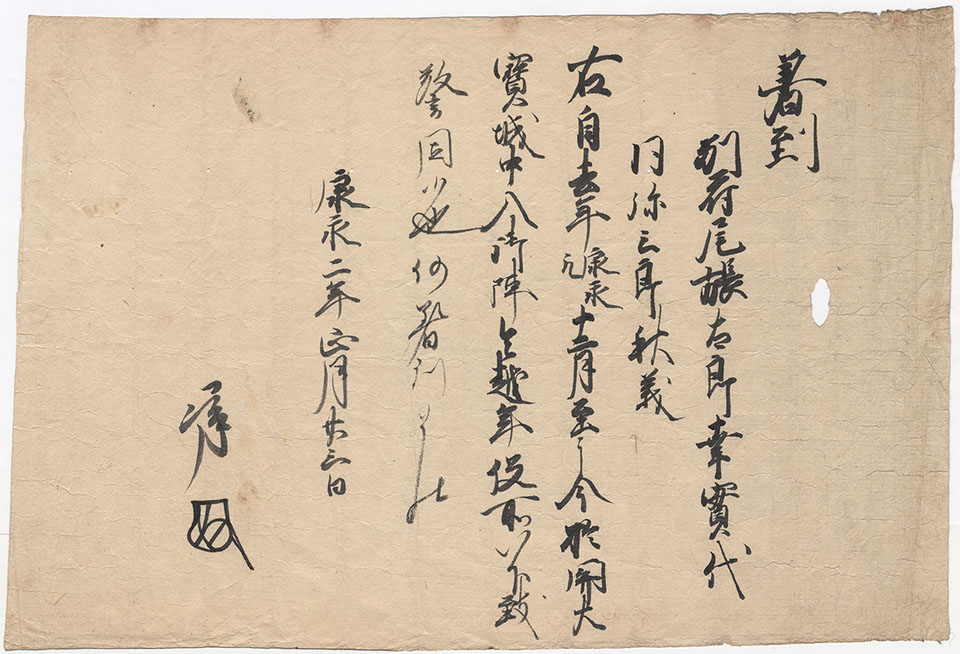 着到
別府尾張太郎幸實代
同弥三郎秋義
右自去年康永元十二月至于今於関大
寶城中入御陣令越年役所以下致
警固候也仍着到如件
康永二年正月廿三日